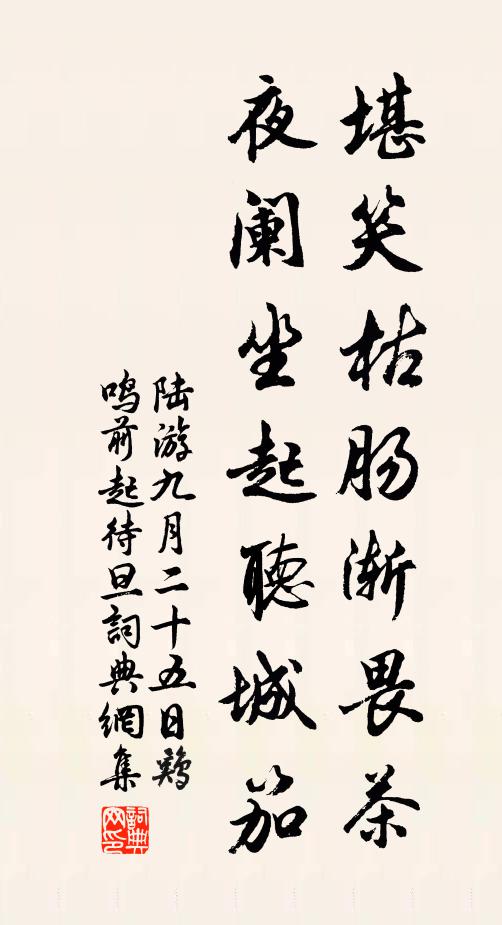 堪笑枯肠渐畏茶
夜阑坐起聴城笳
陆游九月二十五日鸡
鸣前起待旦詞典網集
詞典
网印